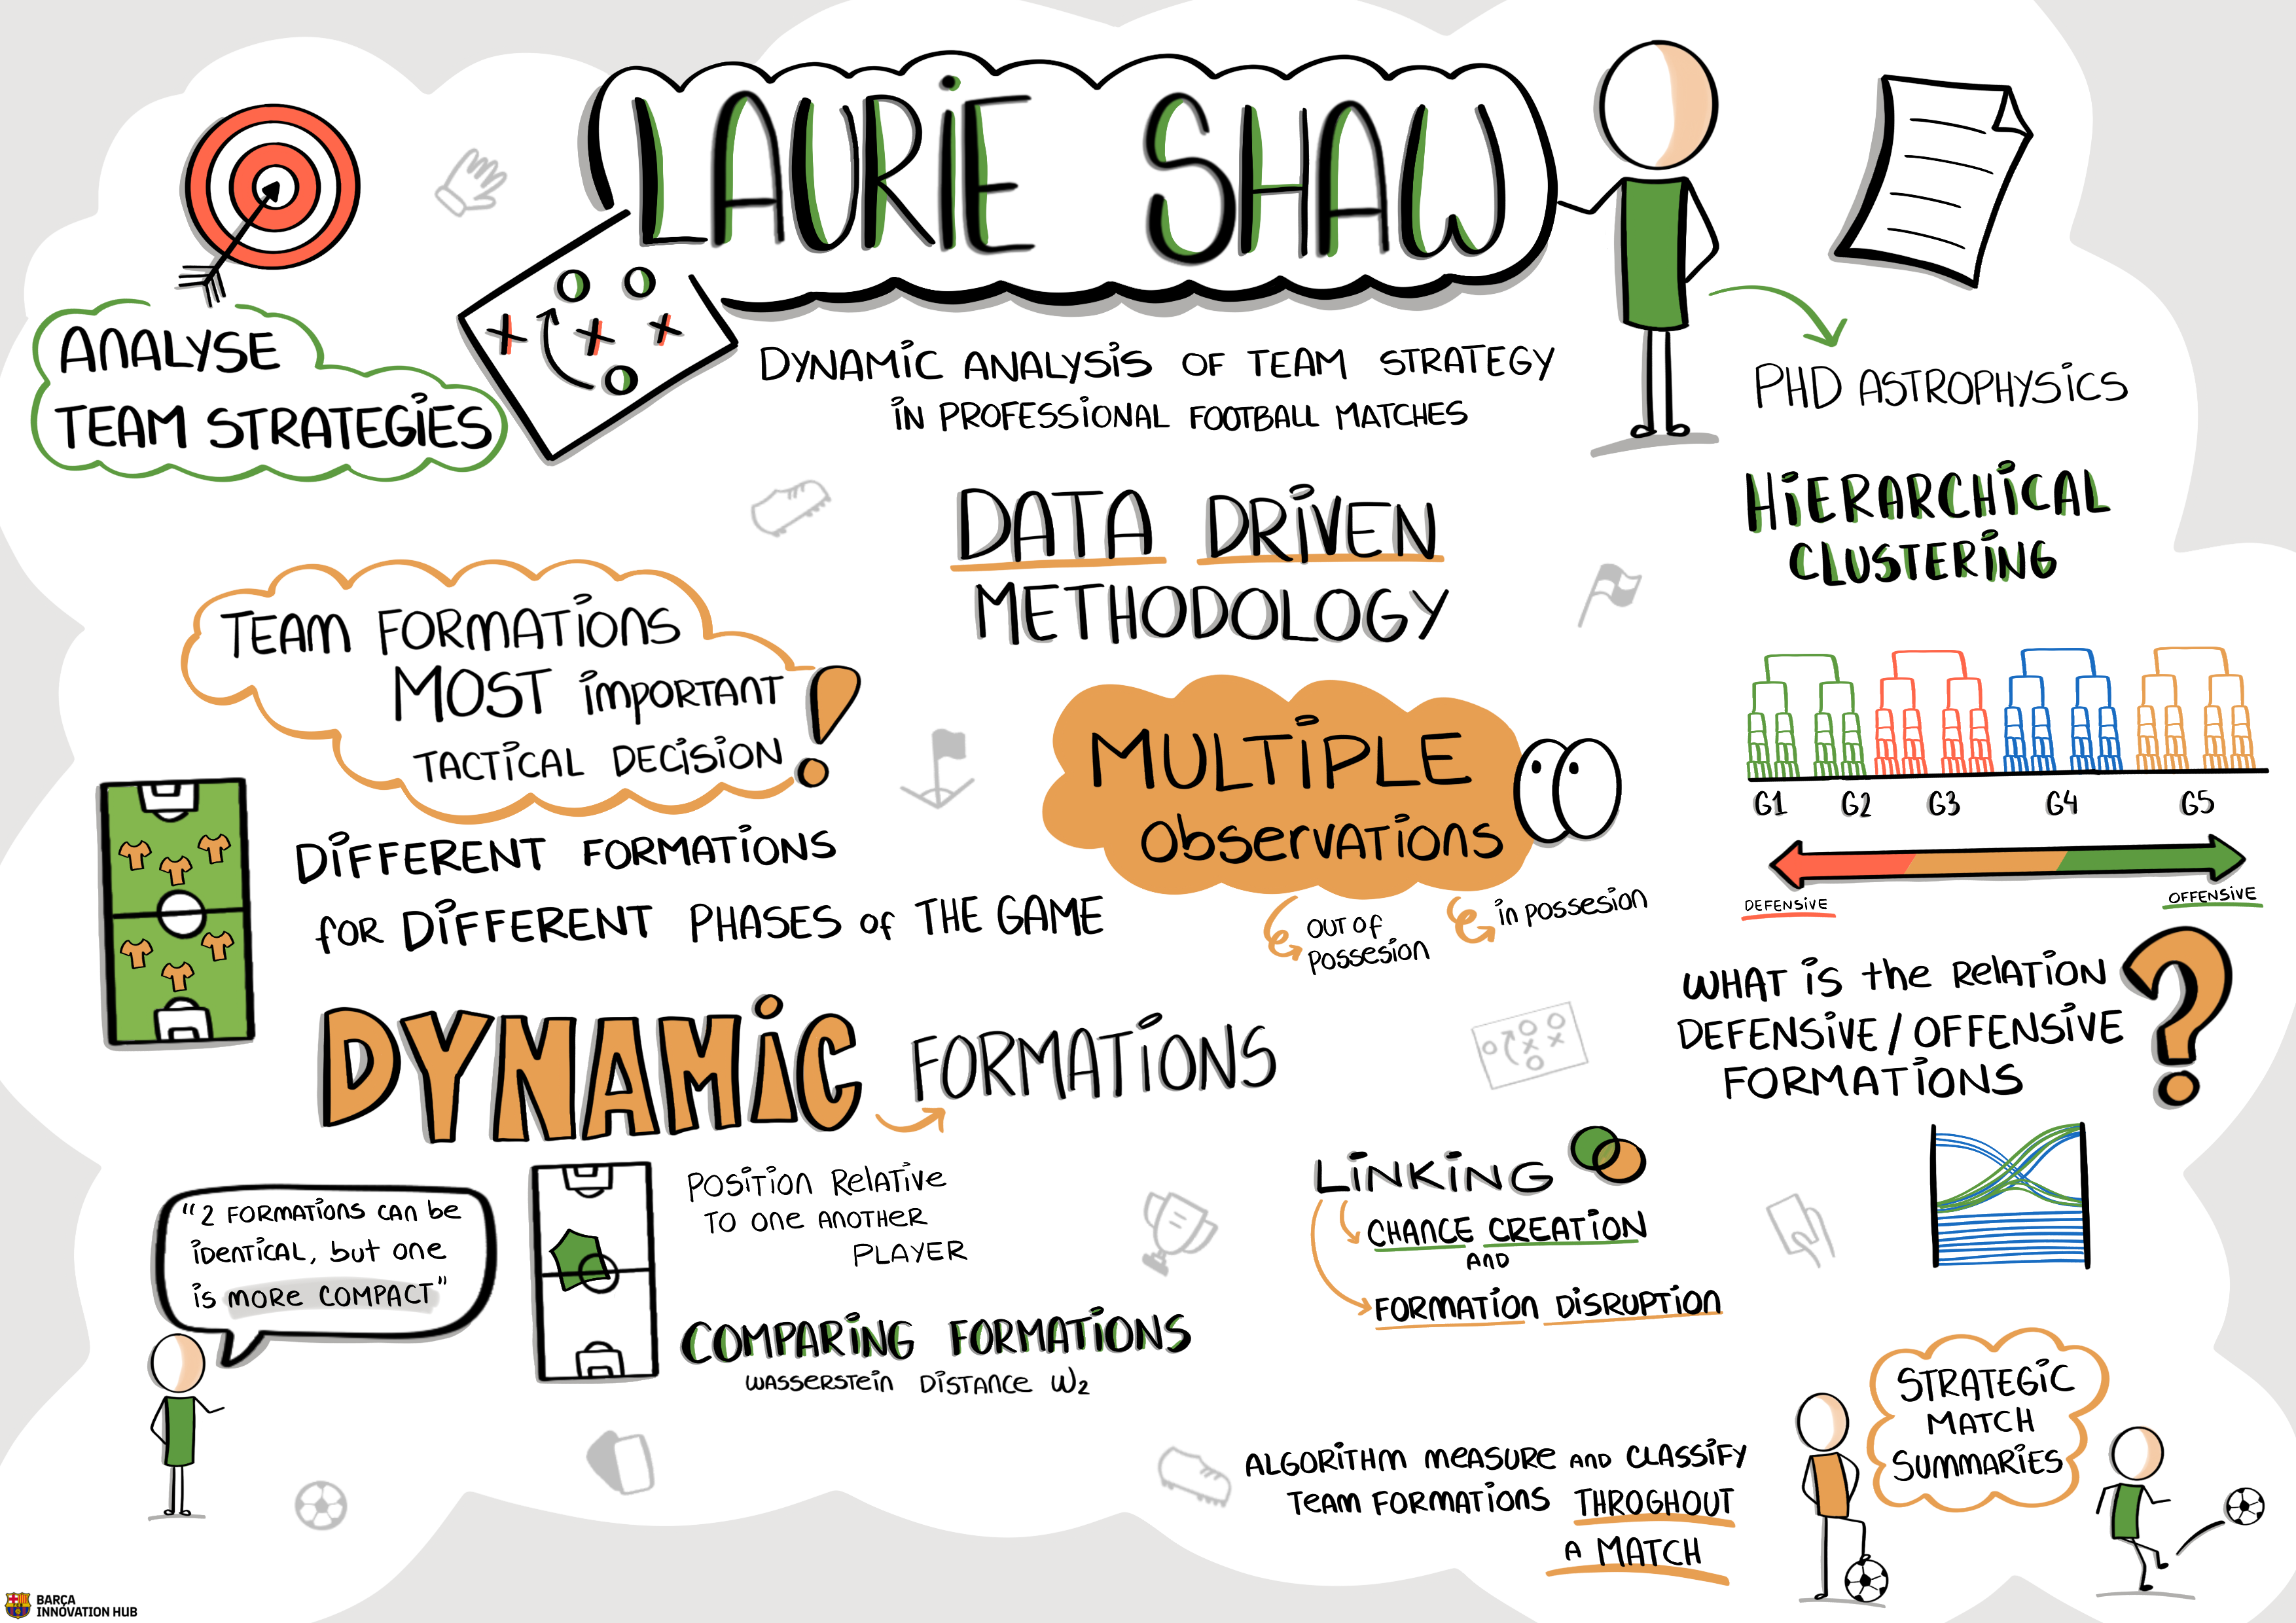 LAURIE SHAW
DYNAMIC ANALYSIS OF TEAM STRATEGY
IN PROFESSIONAL FOOTBALL MATCHES
ANALYSE
TEAM STRATEGIES
PHD ASTROPHYSICS
DATA DRIVEN
METHODOLOGY
HIERARCHICAL
CLUSTERING
TEAM FORMATIONS
MOST IMPORTANT
TACTICAL DECISION!
DIFFERENT FORMATIONS
FOR DIFFERENT PHASES OF THE GAME
MULTIPLE
OBSERVATIONS
OUT OF
POSSESION
IN POSSESION
G1 G2 G3 G4 G5
DEFENSIVE
OFFENSIVE
DYNAMIC FORMATIONS
WHAT IS THE RELATION
DEFENSIVE / OFFENSIVE
FORMATIONS
?
"2 FORMATIONS CAN BE
IDENTICAL, BUT ONE
IS MORE COMPACT"
POSITION RELATIVE
TO ONE ANOTHER
PLAYER
COMPARING FORMATIONS
WASSERSTEIN DISTANCE W2
LINKING
CHANCE CREATION
AND
FORMATION DISRUPTION
ALGORITHM MEASURE AND CLASSIFY
TEAM FORMATIONS THROGHOUT
A MATCH
STRATEGIC
MATCH
SUMMARIES
BARÇA
INNOVATION HUB